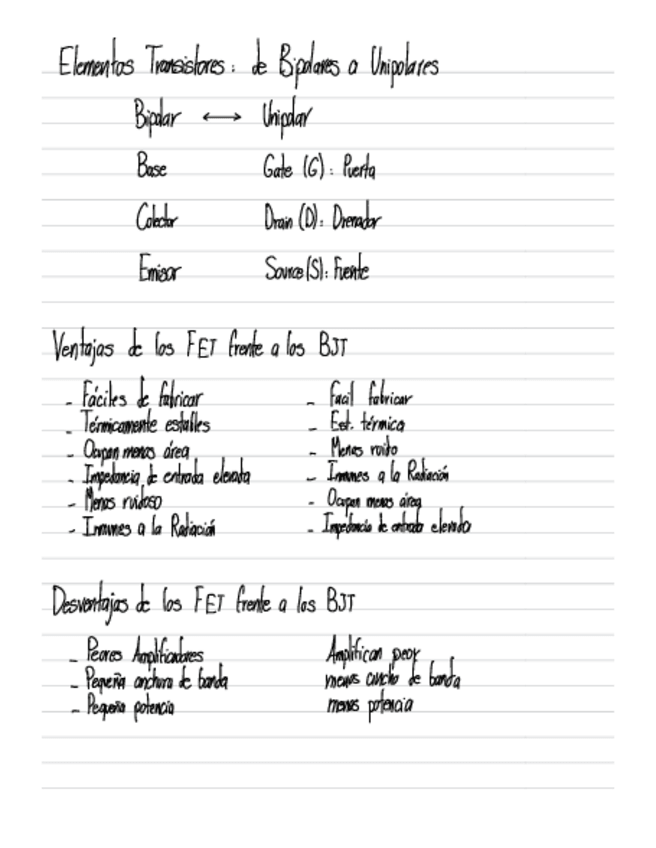 Elementos Transistores: de Bipolares a Unipolares
Bipolar ⟷ Unipolar
Base Gate (G): Puerta
Colector Drain (D): Drenador
Emisor Source (S): Fuente
Ventajas de los FET frente a los BJT
- Fáciles de fabricar - Facil fabricar
- Térmicamente estables - Est. térmica
- Ocupan menos área - Menos ruido
- Impedancia de entrada elevada - Inmunes a la Radiación
- Menos ruidoso - Ocupan menos área
- Inmunes a la Radiación - Impedancia de entrada elevada
Desventajas de los FET frente a los BJT
- Peores Amplificadores Amplifican peor
- Pequeña anchura de banda menos ancho de banda
- Pequeña potencia menos potencia